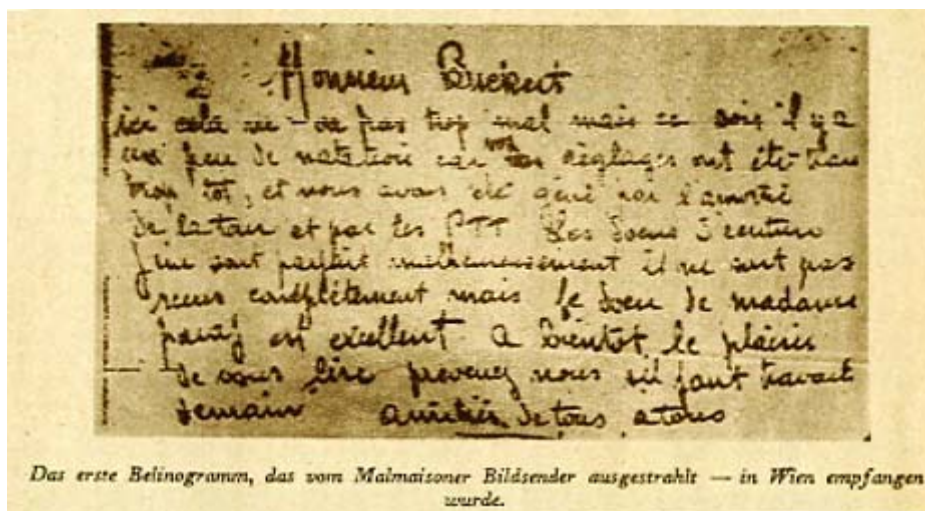 Monsieur
ici cela ne va pas trop mal mais ce soir il y a
un peu de natation car vos réglages ont été
trop tot, et nous avons été gêné par l'amorti
de la tour et par les PTT Les docus d'ecriture
fine sont parfait malheureusement il ne sont pas
recus complètement mais le docu de madame
est excellent a bientôt le plaisir
de vous lire prevenez nous sil faut travail
demain amitiés de tous a tous
Das erste Belinogramm, das vom Malmaisoner Bildsender ausgestrahlt — in Wien empfangen
wurde.